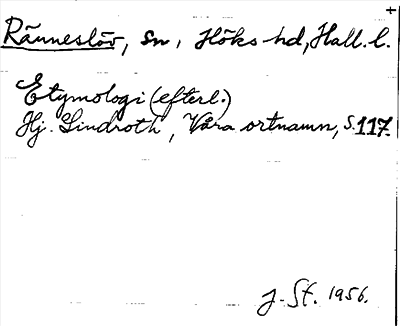 Ränneslöv, sn, Höks hd, Hall. l.
Etymologi (efterl.)
Hj. Lindroth, Våra ortnamn, s. 117.
J. St. 1956.